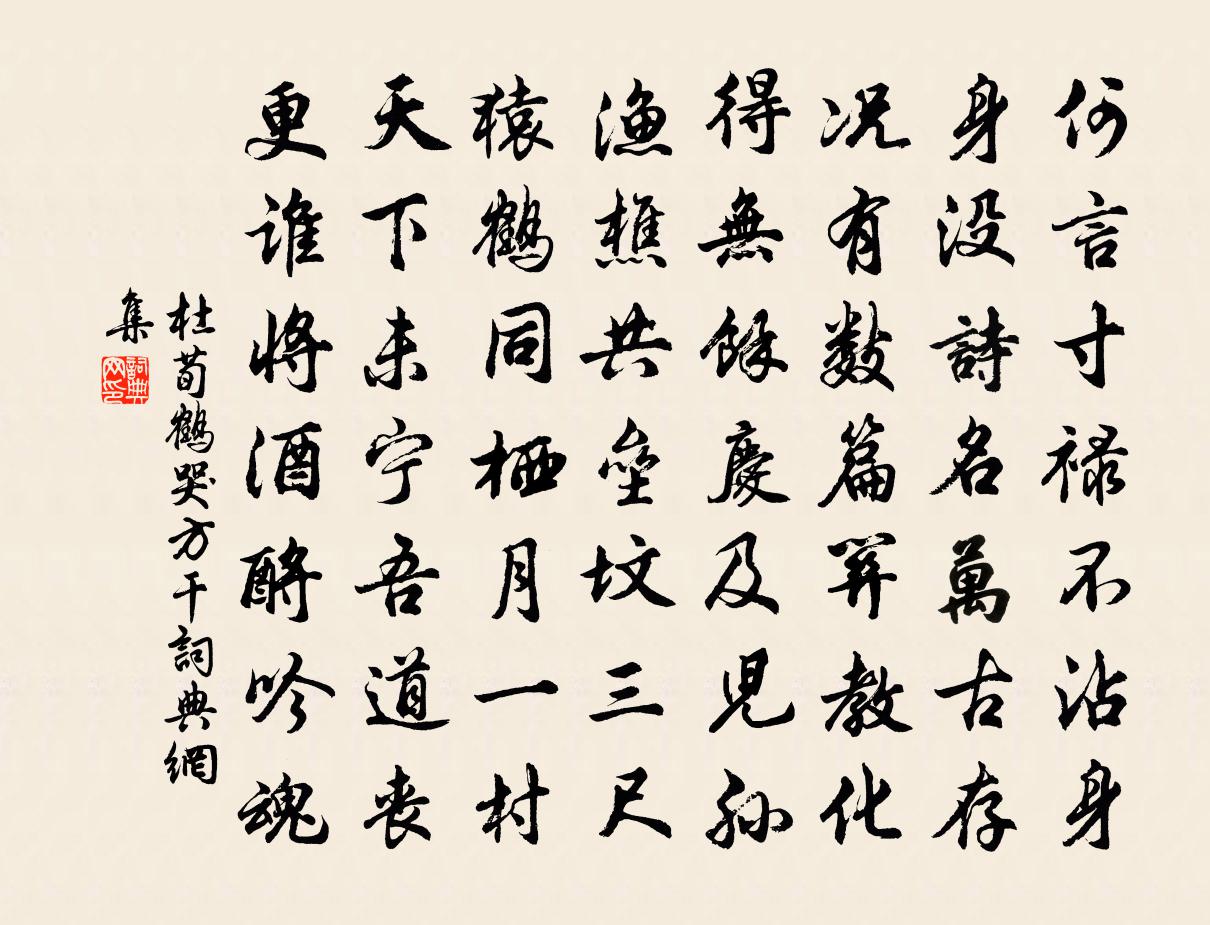 何言寸禄不沾身
身没詩名萬古存
况有数篇関教化
得無餘慶及児孫
漁樵共壘坟三尺
猿鶴同栖月一村
天下未宁吾道丧
更谁将酒酹吟魂
杜荀鶴哭方干詞典網
集
詞典
网印